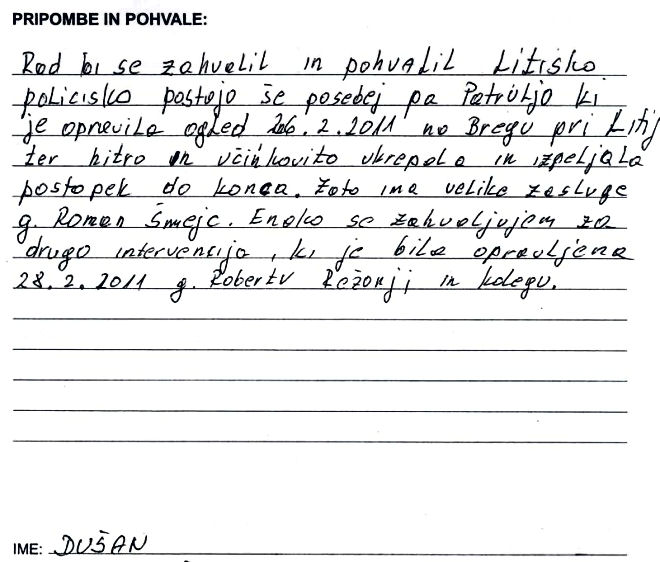 PRIPOMBE IN POHVALE:
Rad bi se zahvalil in pohvalil Litisko
policisko postajo še posebej pa Patruljo ki
je opravila ogled 26.2.2011 na Bregu pri Litij
ter hitro in učinkovito ukrepala in izpeljala
postopek do konca. Zato ima velike zasluge
g. Roman Šmejc. Enako se zahvaljujem za
drugo intervencijo, ki je bila opravljena
28.2.2011 g. Robertu Režonji in kolegu.
IME: DUŠAN